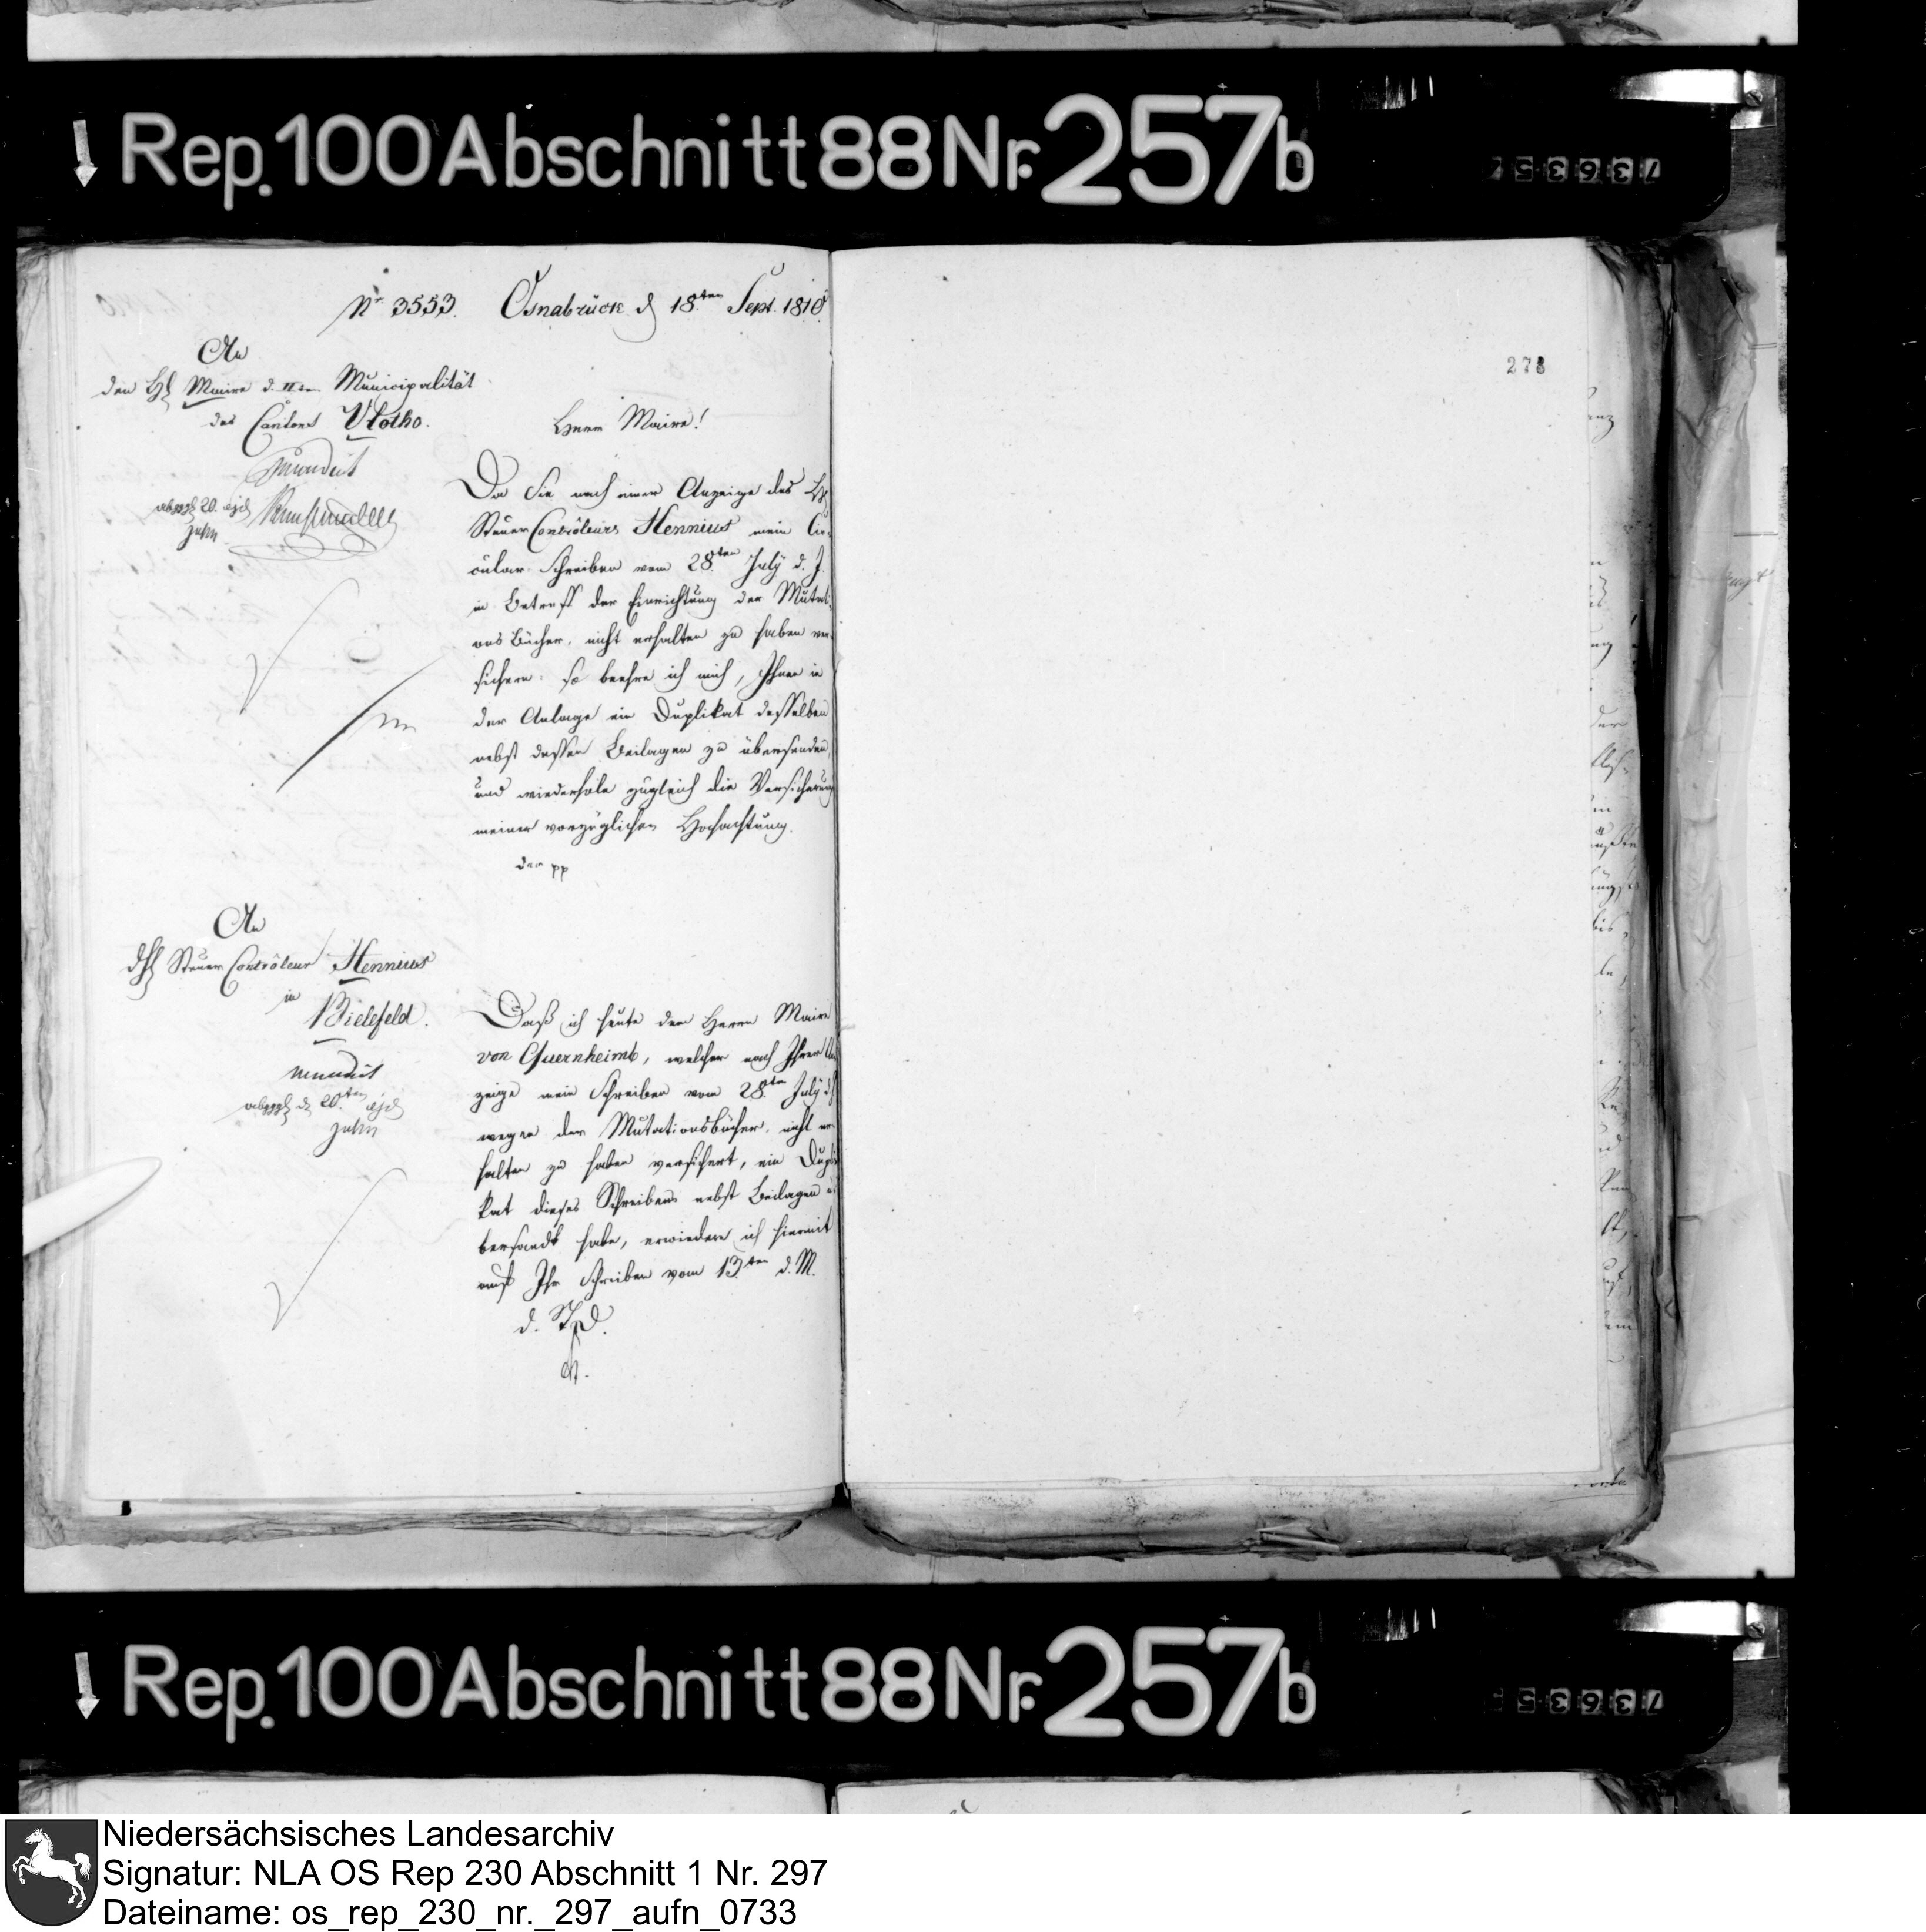 Rep. 100 Abschnitt 88 Nr. 257b
736357
Nr. 3553. Osnabrück d 18ten Sept. 1810
An
den H. Maire d. IIten Municipalität
des Cantons Vlotho.
mundirt
abggl 20. ejd
Jahn
Herr Maire!
Da Sie nach einer Anzeige des H.
Steuer Contrôleurs Hennius mein Cir-
cular-Schreiben vom 28ten July d. J.
in Betreff der Einrichtung der Mutati-
ons Bücher, nicht erhalten zu haben ver-
sichern: so beehre ich mich, Ihnen in
der Anlage ein Duplikat desselben
nebst dessen Beilagen zu übersenden,
und wiederhole zugleich die Versicherung
meiner vorzüglichen Hochachtung.
der pp
An
dH Steuer Contrôleur Hennius
in
Bielefeld.
mundirt
abggl d 20ten ejd
Jahn
Daß ich heute dem Herrn Maire
von Quernheimb, welcher nach Ihrer An
zeige mein Schreiben vom 28ten July d J
wegen der Mutationsbücher, nicht er-
halten zu haben versichert, ein Dupli
kat dieses Schreibens nebst Beilagen ü
bersandt habe, erwiedere ich hiermit
auf Ihr Schreiben vom 13ten d. M.
d. StD.
278
Rep. 100 Abschnitt 88 Nr. 257b
73635
Niedersächsisches Landesarchiv
Signatur: NLA OS Rep 230 Abschnitt 1 Nr. 297
Dateiname: os_rep_230_nr._297_aufn_0733